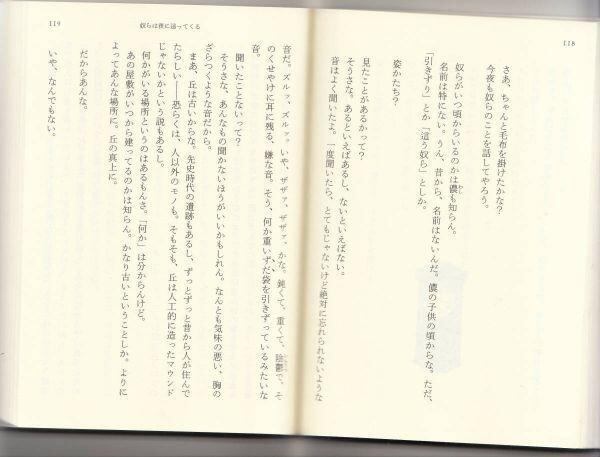 118
さあ、ちゃんと毛布を掛けたかな？
今夜も奴らのことを話してやろう。
奴らがいつ頃からいるのかは儂も知らん。
名前は特にない。うん、昔から、名前はないんだ。儂の子供の頃からな。ただ、
「引きずり」とか「這う奴ら」としか。
姿かたち？
見たことがあるかって？
そうさな。あるといえばあるし、ないといえばない。
音はよく聞いたよ。一度聞いたら、とてもじゃないけど絶対に忘れられないような
119
奴らは夜に這ってくる
音だ。ズルッ、ズルッ。いや、ザザァ、ザザァ、かな。鈍くて、重くて、陰鬱で、そ
のくせやけに耳に残る、嫌な音。そう、何か重いずだ袋を引きずっているみたいな
音。
聞いたことないって？
そうさな、あんなもの聞かないほうがいいかもしれん。なんとも気味の悪い、胸の
ざらつくような音だから。
まあ、丘は古いからな。先史時代の遺跡もあるし、ずっとずっと昔から人が住んで
たらしい――恐らくは、人以外のモノも。そもそも、丘は人工的に造ったマウンド
じゃないかという説もあるし。
何かがいる場所というのはあるもんさ。「何か」は分からんけど。
あの屋敷がいつから建ってるのかは知らん。かなり古いということしか。よりに
よってあんな場所に。丘の真上に。
だからあんな。
いや、なんでもない。